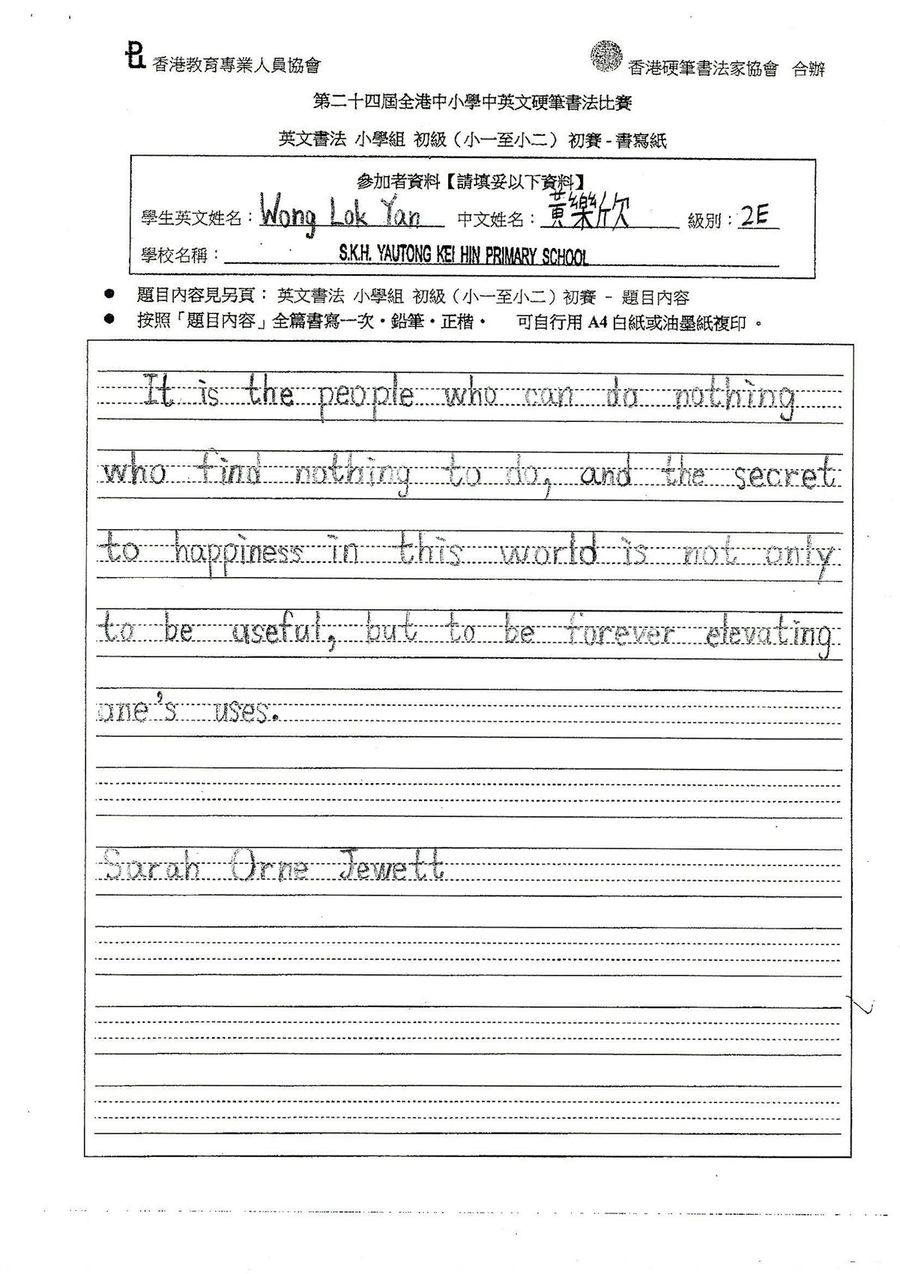 香港教育專業人員協會
香港硬筆書法家協會 合辦
第二十四屆全港中小學中英文硬筆書法比賽
英文書法 小學組 初級（小一至小二）初賽-書寫紙
參加者資料【請填妥以下資料】
學生英文姓名：Wong Lok Yan 中文姓名：黃樂欣 級別：2E
學校名稱： S.K.H. YAUTONG KEI HIN PRIMARY SCHOOL
● 題目內容見另頁： 英文書法 小學組 初級（小一至小二）初賽 - 題目內容
● 按照「題目內容」全篇書寫一次‧鉛筆‧正楷‧ 可自行用 A4 白紙或油墨紙複印。
It is the people who can do nothing
who find nothing to do, and the secret
to happiness in this world is not only
to be useful, but to be forever elevating
one's uses.
Sarah Orne Jewett